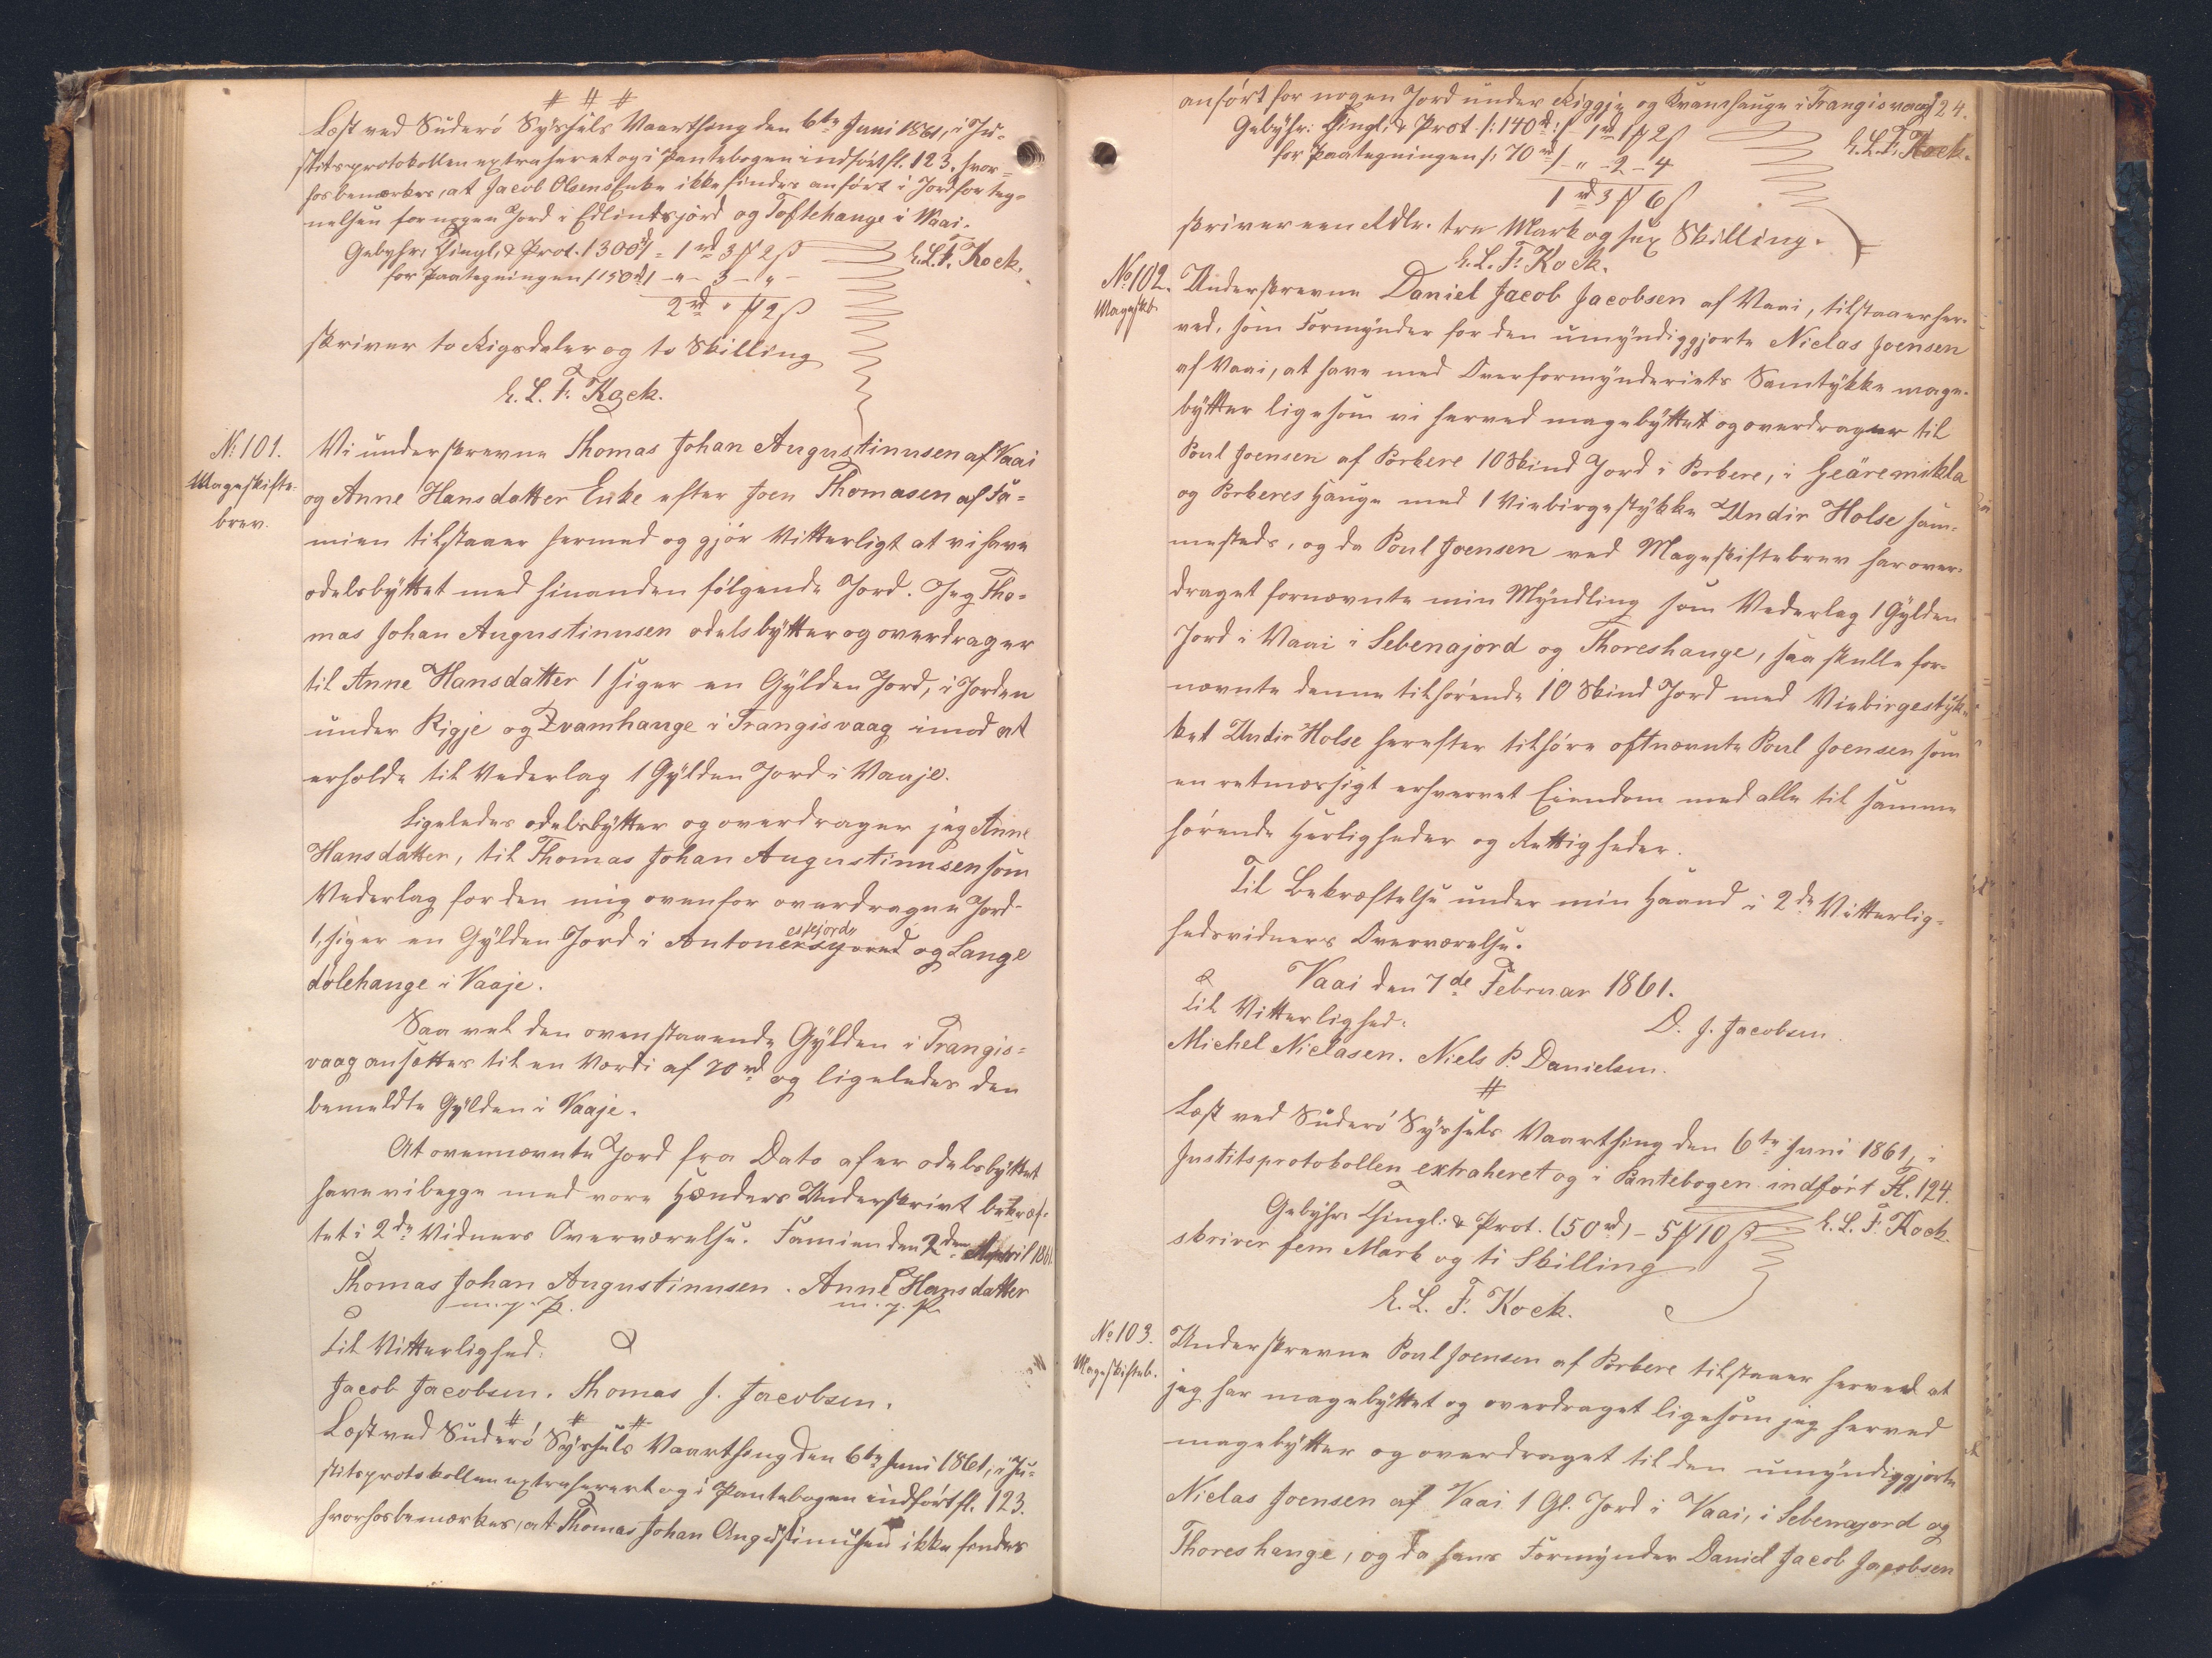 # # #
Læst ved Suderö Sÿssels Vaarthing den 6te Juni 1861, i Ju-
stitsprotokollen extraheret og i Pantebogen indfört fl. 123, hvor-
hos bemærkes, at Jacob Olsens Enke ikke findes anfört i Jordforteg-
nelsen for nogen Jord i Edlindsjörd og Toftehauge i Waai.
Gebÿhr: Thingl. & Prot. /300rd/ = 1rd 3 ℳ 2 ß E.L.F. Kock.
for Paategningen /150rd/ - " - 3 - " -
2rd " ℳ 2 ß
skriver to Rigsdaler og to Skilling
E. L. F. Kock.
No 101. Vi underskrevne Thomas Johan Augustinusen af Vaai
Mageskifte- og Anne Hansdatter Enke efter Joen Thomasen af Fa-
brev. mien tilstaaer hermed og gjör Vitterligt at vi have
odelsbÿttet med hinanden fölgende Jord. Jeg Tho-
mas Johan Augustinusen odelsbÿtter og overdrager
til Anne Hansdatter 1 siger en Gÿlden Jord, i Jorden
under Rigje og Qvamhauge i Trangisvaag imod at
erholde til Vederlag 1 Gÿlden Jord i Vaaje.
Ligeledes odelsbÿtter og overdrager jeg Anne
Hansdatter, til Thomas Johan Augustinusen som
Vederlag for den mig ovenfor overdragne Jord-
1, siger en Gÿlden Jord i Anton esejord og Lange
dölehange i Vaaje.
Saa vel den ovenstaaende Gÿlden i Trangis-
vaag ansettes til en Værdi af 70 rd og ligeledes den
bemeldte Gÿlden i Vaaje.
At ovennævnte Jord fra Dato af er odelsbÿttet
have vi begge med vore Hænders Underskrivt bekræf-
tet i 2de Vidners Overværelse. Famien den 2den April 1861.
Thomas Johan Augustinusen. Anne Hansdatter
m. p. P. m. p. P.
Til Vitterlighed:
Jacob Jacobsen. Thomas J. Jacobsen.
# # #
Læst ved Suderö Sÿssels Vaarthing den 6te Juni 1861, i Ju-
stitsprotokollen extraheret og i Pantebogen indfört fl. 123.
hvorhos bemærkes, at Thomas Johan Augustinusen ikke findes
124.
anfört for nogen Jord under Riggje og Kvamhauge i Trangisvaag
Gebÿhr: Thingl. & Prot. /: 140rd :/ - 1rd 1 ℳ 2 ß E.L.F. Kock.
for Paategningen /: 70rd / " - 2 - 4
1rd 3 ℳ 6 ß
skriver een Rdlr. tre Mark og sex Skilling.
E. L. F. Kock.
No 102. Underskrevne Daniel Jacob Jacobsen af Vaai, tilstaaer her-
Mageskb. ved, som Formÿnder for den umÿndiggjorte Niclas Joensen
af Vaai, at have med Overformÿnderiets Samtÿkke mage-
bÿtter ligesom vi herved magebÿttet og overdrager til
Poul Joensen af Porkere 10 Skind Jord i Porkere, i Geäremikla
og Porkeres Hauge med 1 Viebirgestÿkke Undir Holse sam-
mesteds, og da Poul Joensen ved Mageskiftebrev har over-
draget fornævnte min Mÿndling som Vederlag 1 Gÿlden
Jord i Vaai i Sebenajord og Thoreshauge, saa skulle for-
nævnte denne tilhörende 10 Skind Jord med Viebirgestÿk-
ket Undir Holse herefter tilhöre oftnævnte Poul Joensen som
en retmæssigt erhvervet Eiendom med alle til samme
hörende Herligheder og Rettigheder.
Til Bekræftelse under min Haand i 2de Vitterlig-
hedsvidners Overværelse.
Vaai den 7de Februar 1861.
D. J. Jacobsen.
Til Vitterlighed:
Michel Niclasen. Niels P. Danielsen.
#
Læst ved Suderö Sÿssels Vaarthing den 6te Juni 1861, i
Justitsprotokollen extraheret og i Pantebogen indfört Fl. 124.
Gebÿhr Thingl: & Prot. (50rd) - 5 ℳ 10 ß E. L. F. Kock.
skriver fem Mark og ti Skilling
E. L. F. Kock.
No 103. Underskrevne Poul Joensen af Porkere tilstaaer herved at
Mageskifteb. jeg har magebÿttet og overdraget ligesom jeg herved
magebÿtter og overdraget til den umÿndiggjorte
Niclas Joensen af Vaai 1 Gl. Jord i Vaai, i Sebenajord og
Thoreshange, og da hans Formÿnder Daniel Jacob Jacobsen